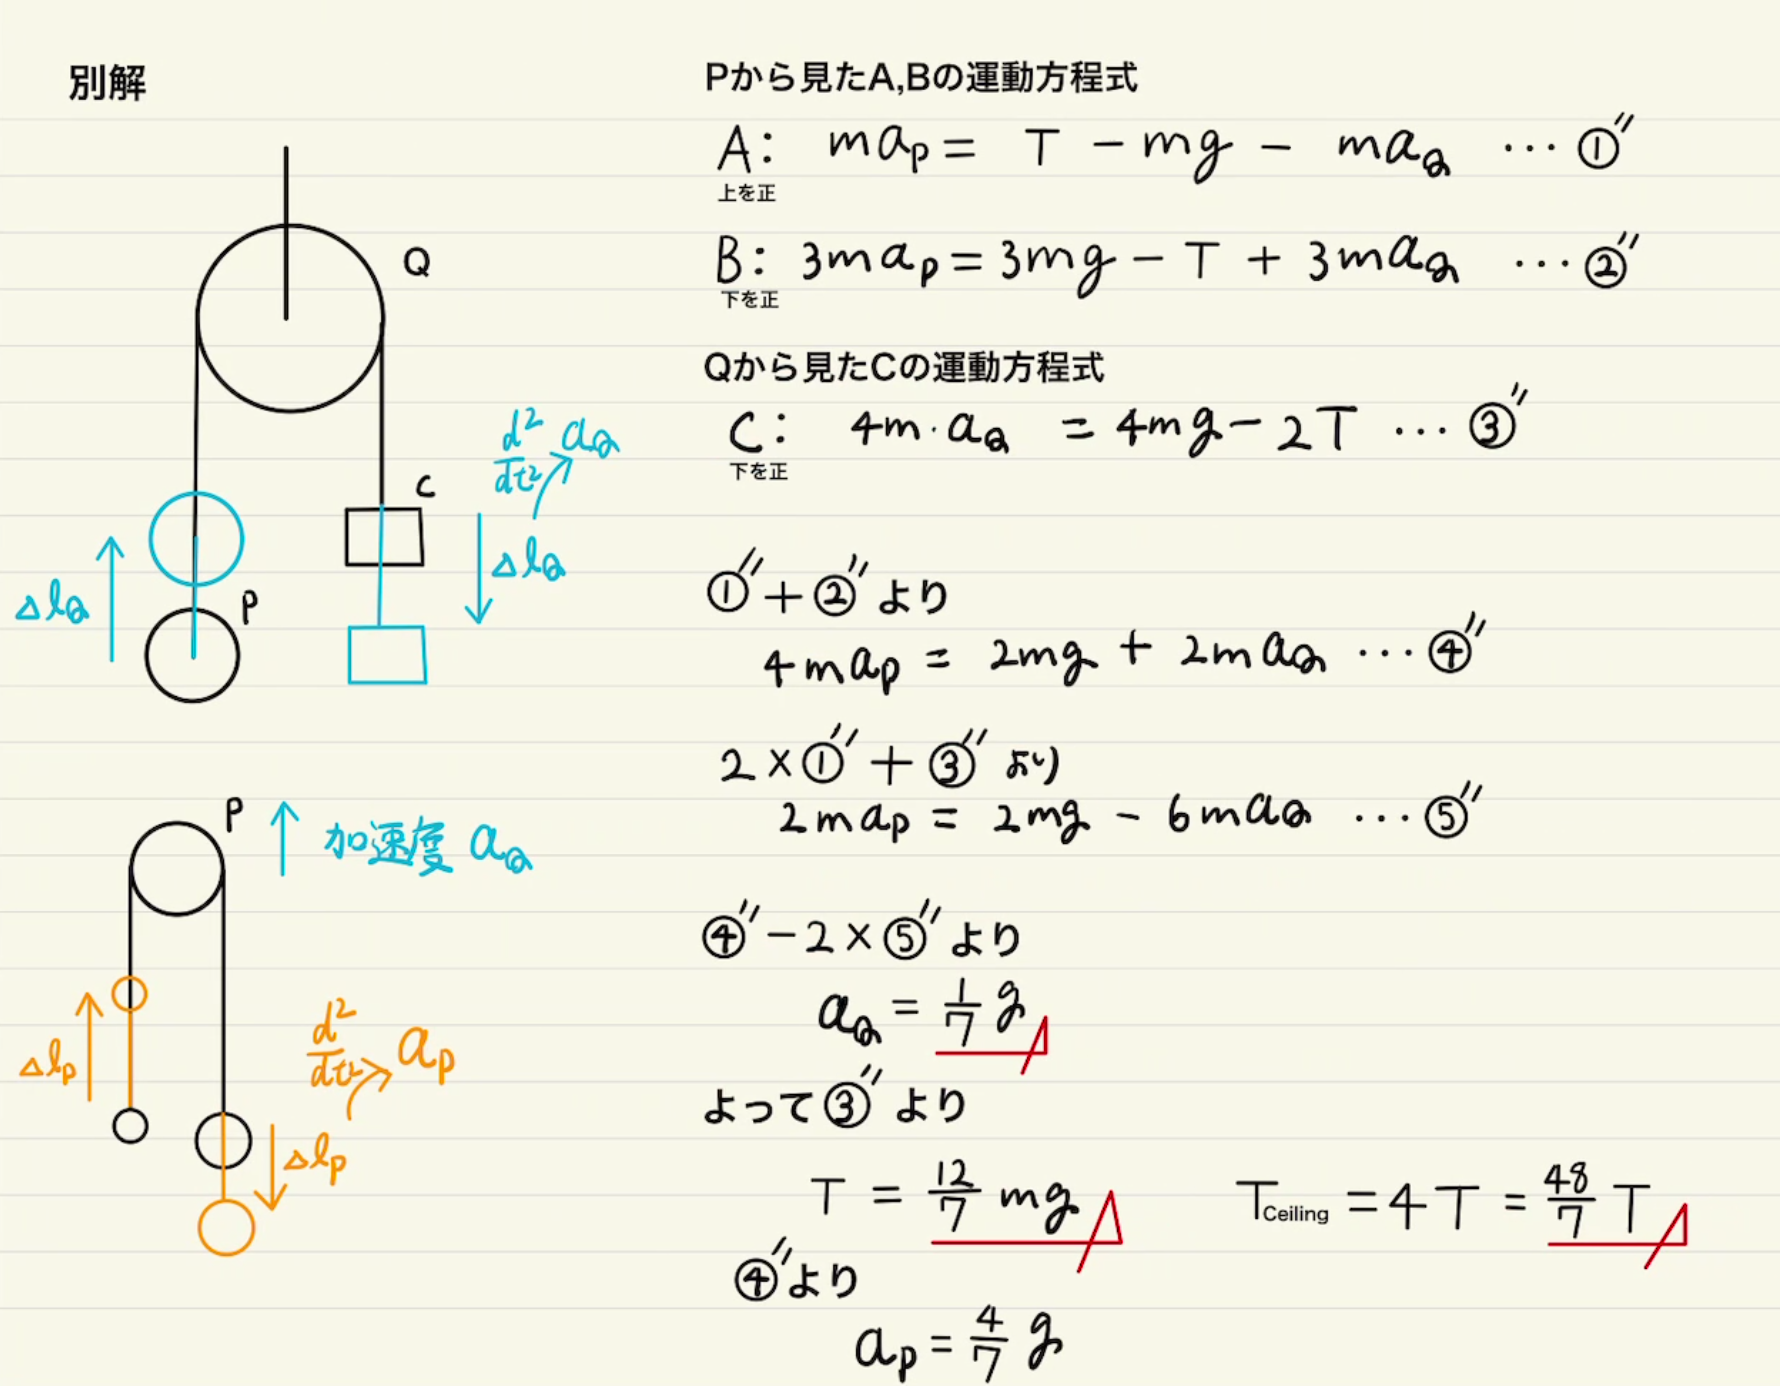 別解
Q
C
d²/dt² a_Q
Δl_Q
Δl_Q
P
P
加速度 a_Q
d²/dt² a_P
Δl_P
Δl_P
Pから見たA,Bの運動方程式
A: ma_P = T − mg − ma_Q ⋯ ①″
上を正
B: 3ma_P = 3mg − T + 3ma_Q ⋯ ②″
下を正
Qから見たCの運動方程式
C: 4m·a_Q = 4mg − 2T ⋯ ③″
下を正
①″ + ②″ より
4ma_P = 2mg + 2ma_Q ⋯ ④″
2 × ①″ + ③″ より
2ma_P = 2mg − 6ma_Q ⋯ ⑤″
④″ − 2 × ⑤″ より
a_Q = 1/7 g
よって ③″ より
T = 12/7 mg
T_Ceiling = 4T = 48/7 T
④″より
a_P = 4/7 g